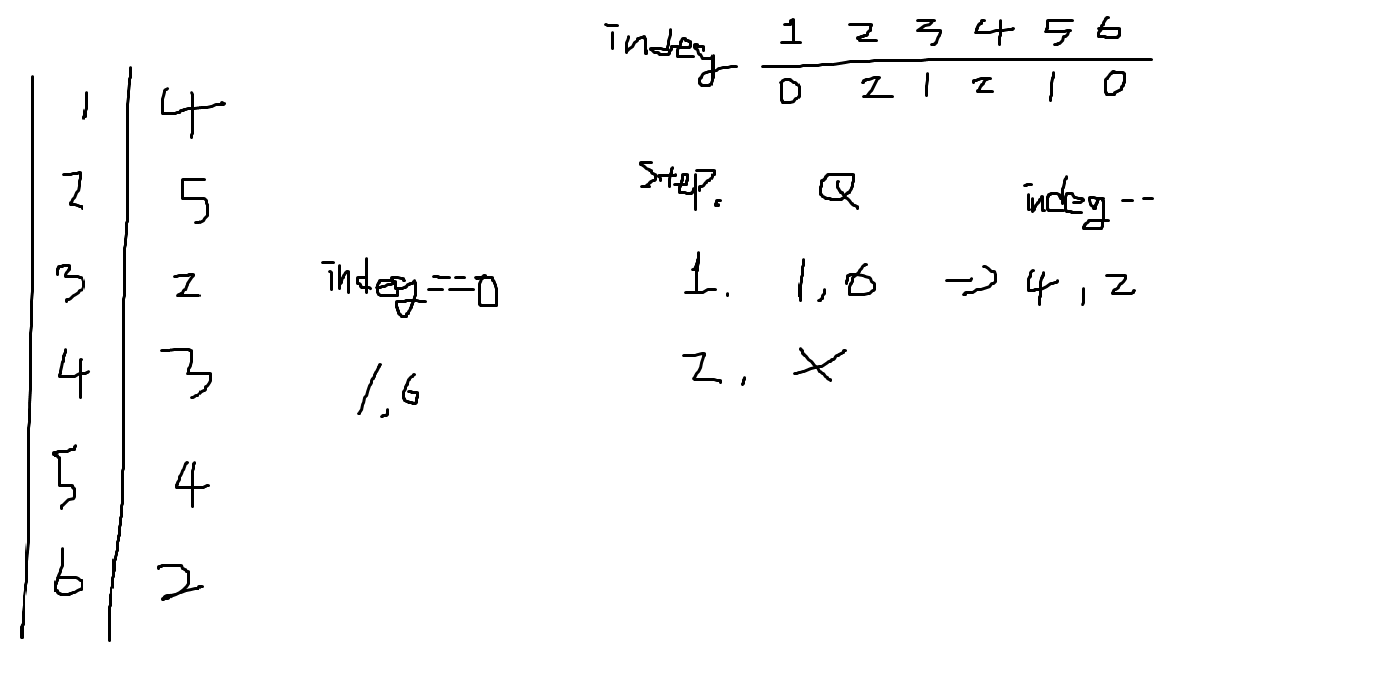 indeg 1 2 3 4 5 6
0 2 1 2 1 0
1 4
2 5
3 2
4 3
5 4
6 2
indeg==0
1,6
Step. Q indeg--
1. 1,6 -> 4,2
2. X